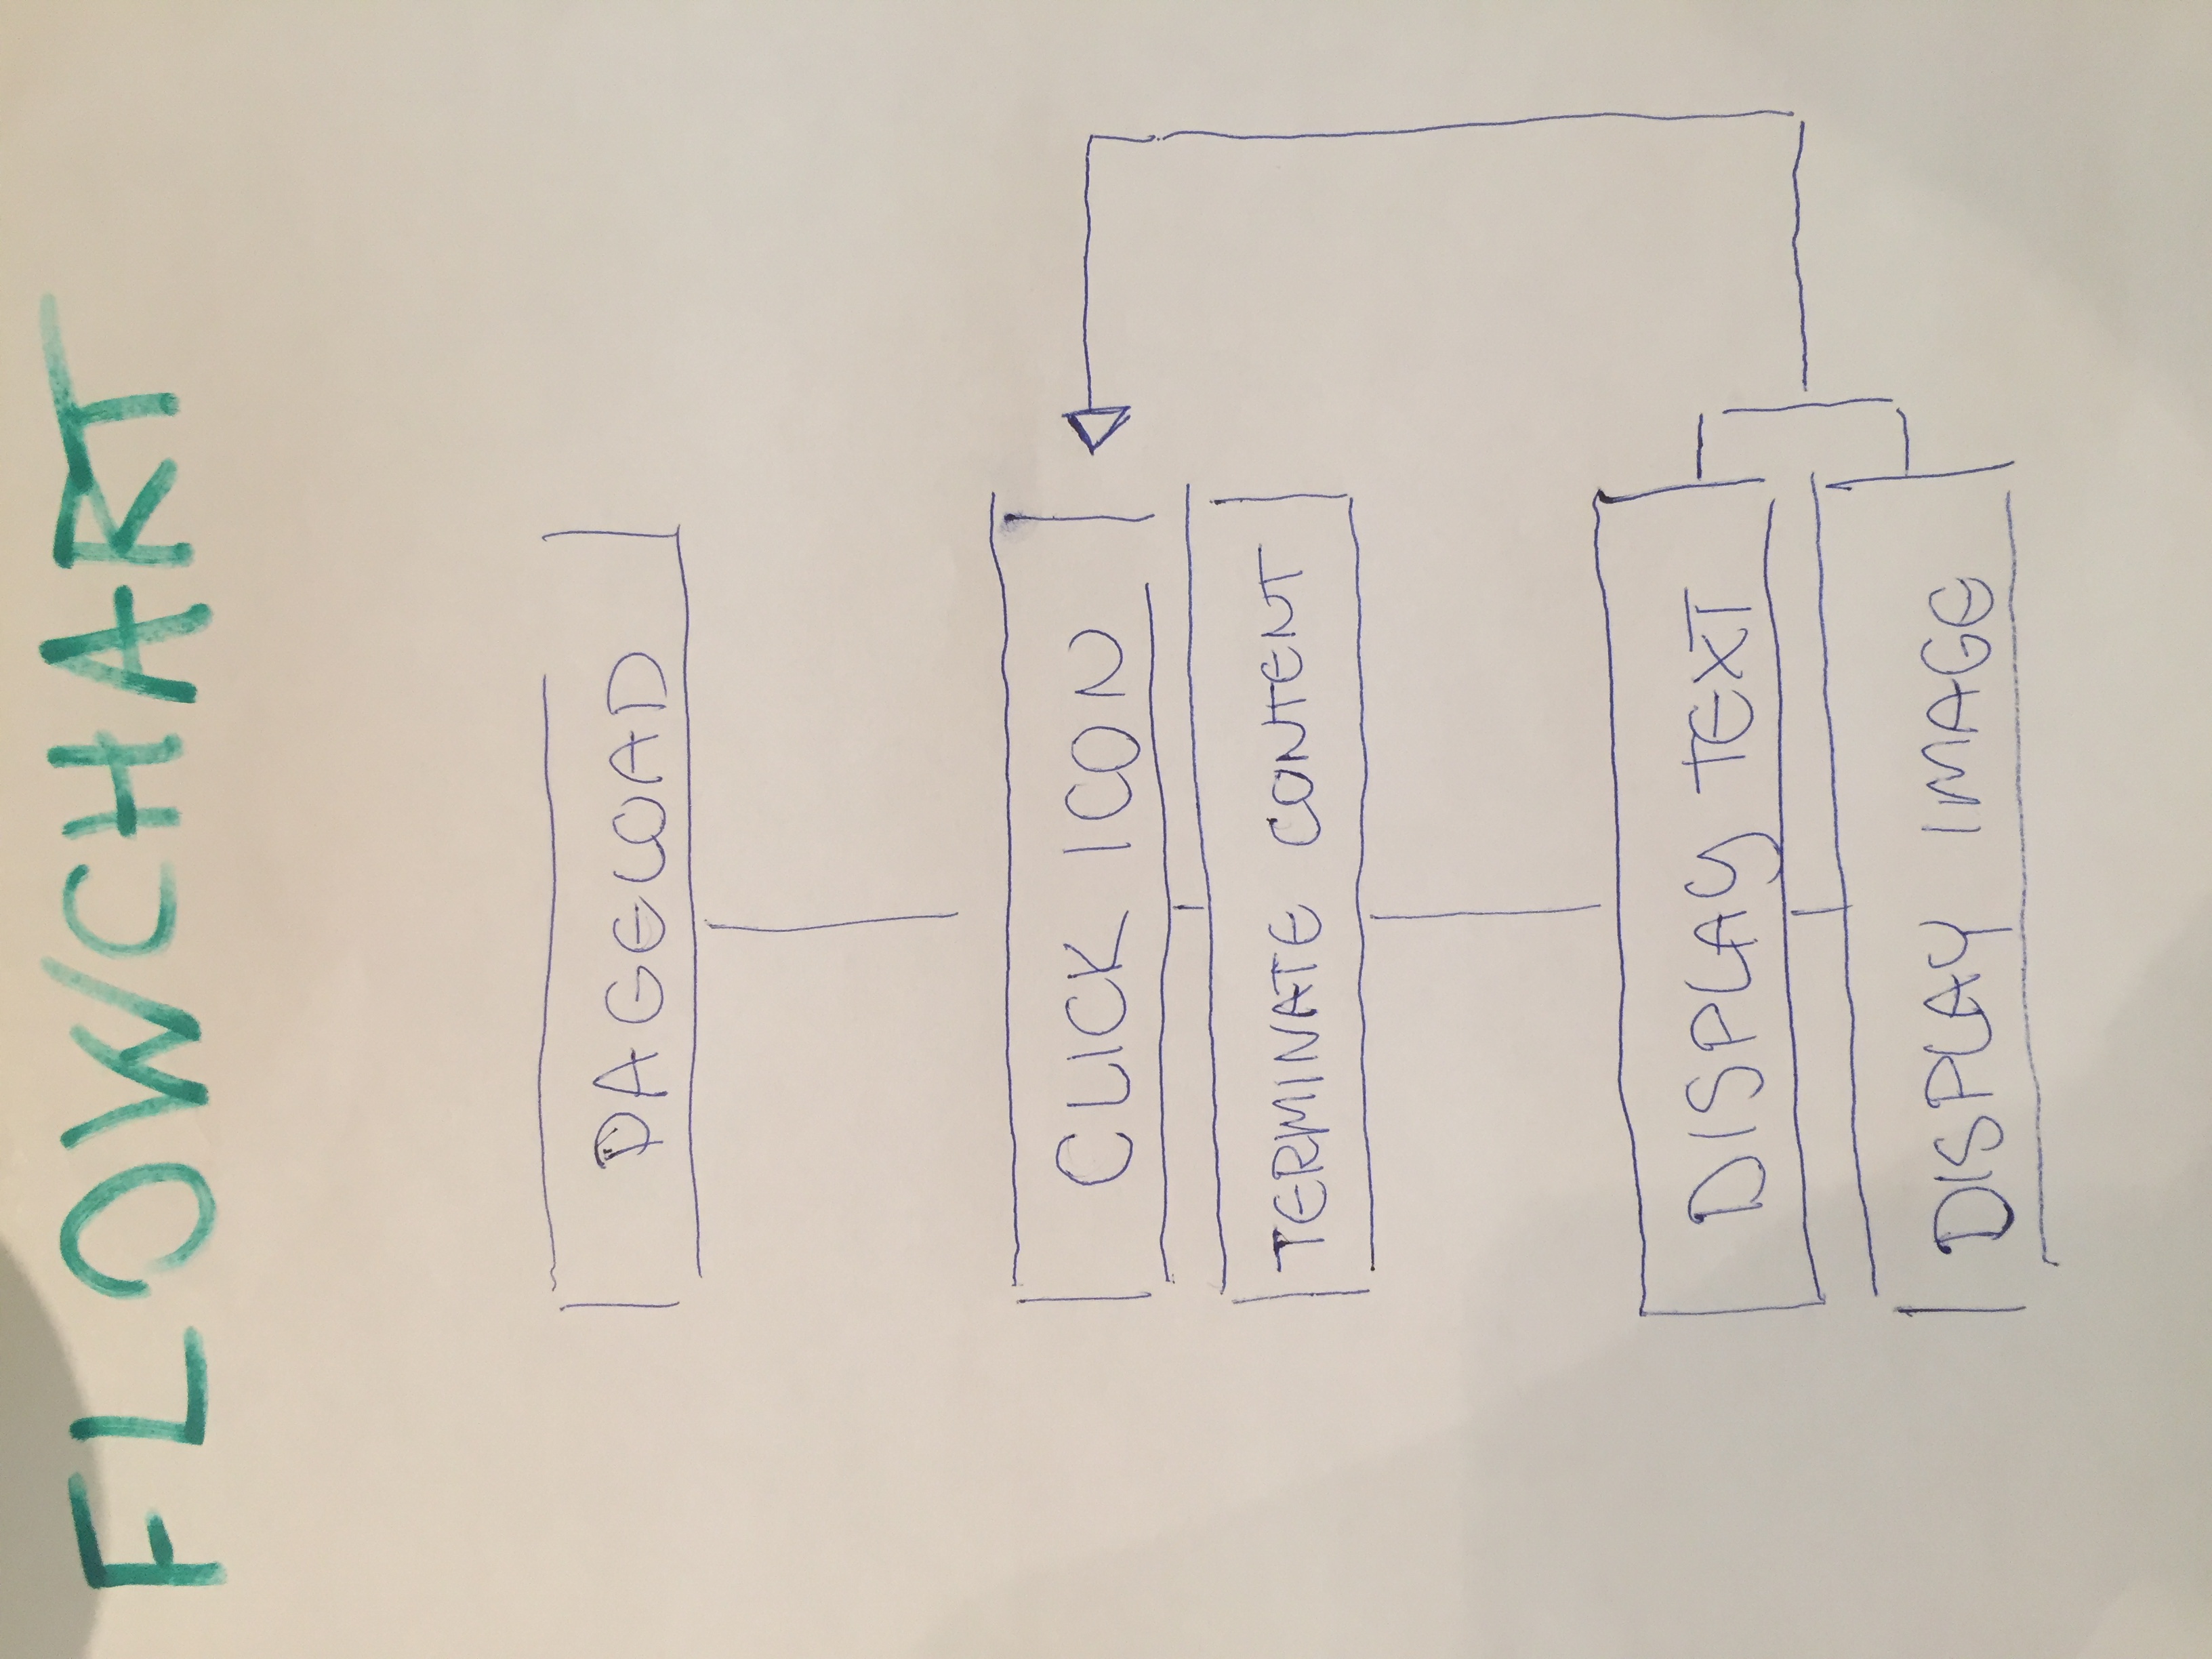 FLOWCHART
PAGELOAD
CLICK ICON
TERMINATE CONTENT
DISPLAY TEXT
DISPLAY IMAGE